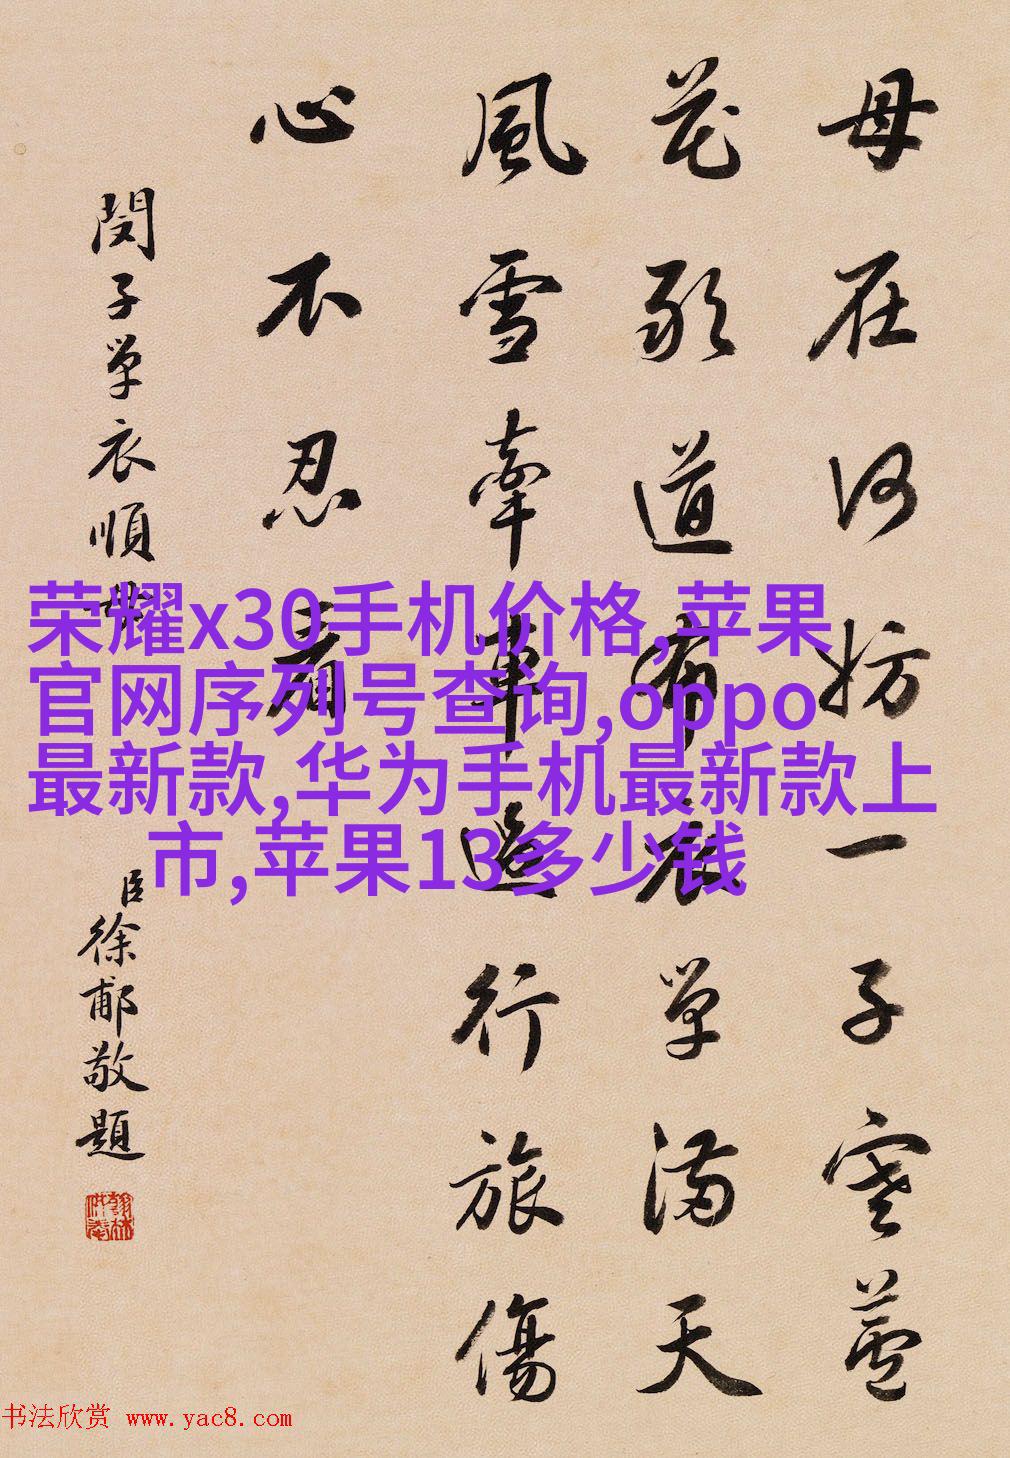 母在何妨一子寒蘆
花敢道布衣單滿天
風雪牽車過行旅傷
心不忍看
閔子單衣順母
臣徐郙敬題
翰林供奉
荣耀x30手机价格,苹果
官网序列号查询,oppo
最新款,华为手机最新款上
市,苹果13多少钱
书法欣赏 www.yac8.com